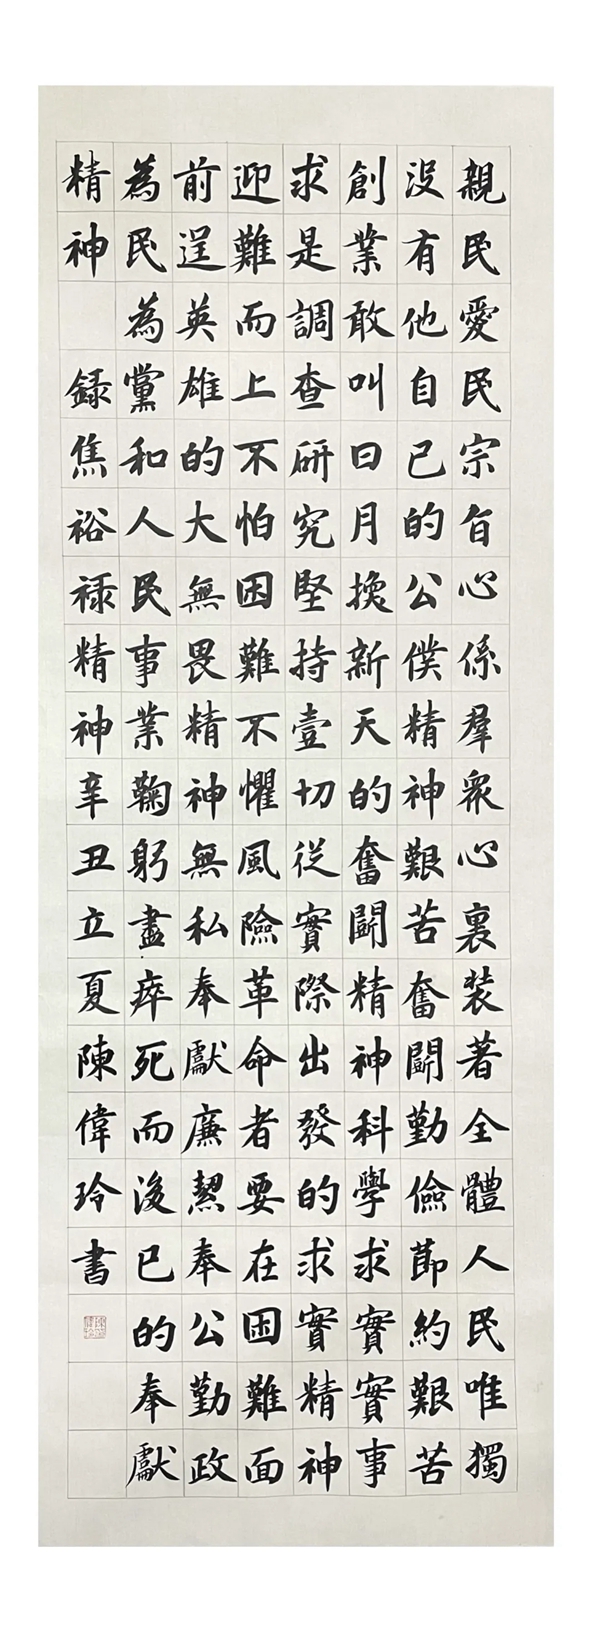 親民愛民宗旨心係羣衆心裏装著全體人民唯獨
没有他自己的公僕精神艱苦奮鬪勤儉節約艱苦
創業敢叫日月換新天的奮鬪精神科學求實實事
求是調查研究堅持壹切從實際出發的求實精神
迎難而上不怕困難不懼風險革命者要在困難面
前逞英雄的大無畏精神無私奉獻廉絜奉公勤政
為民為黨和人民事業鞠躬盡瘁死而後已的奉獻
精神 録焦裕禄精神辛丑立夏陳偉玲書